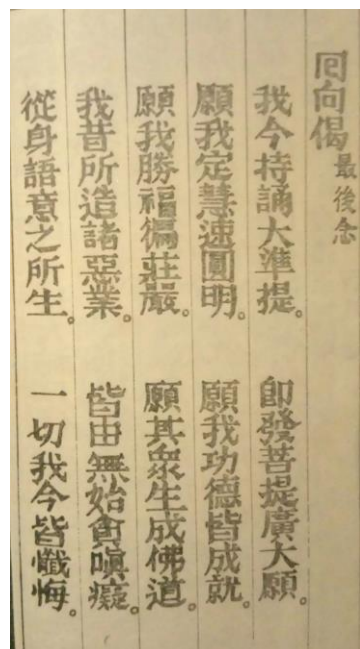 囘向偈 最後念
我今持誦大準提。 即發菩提廣大願。
願我定慧速圓明。 願我功德皆成就。
願我勝福徧莊嚴。 願其眾生成佛道。
我昔所造諸惡業。 皆由無始貪嗔癡。
從身語意之所生。 一切我今皆懺悔。